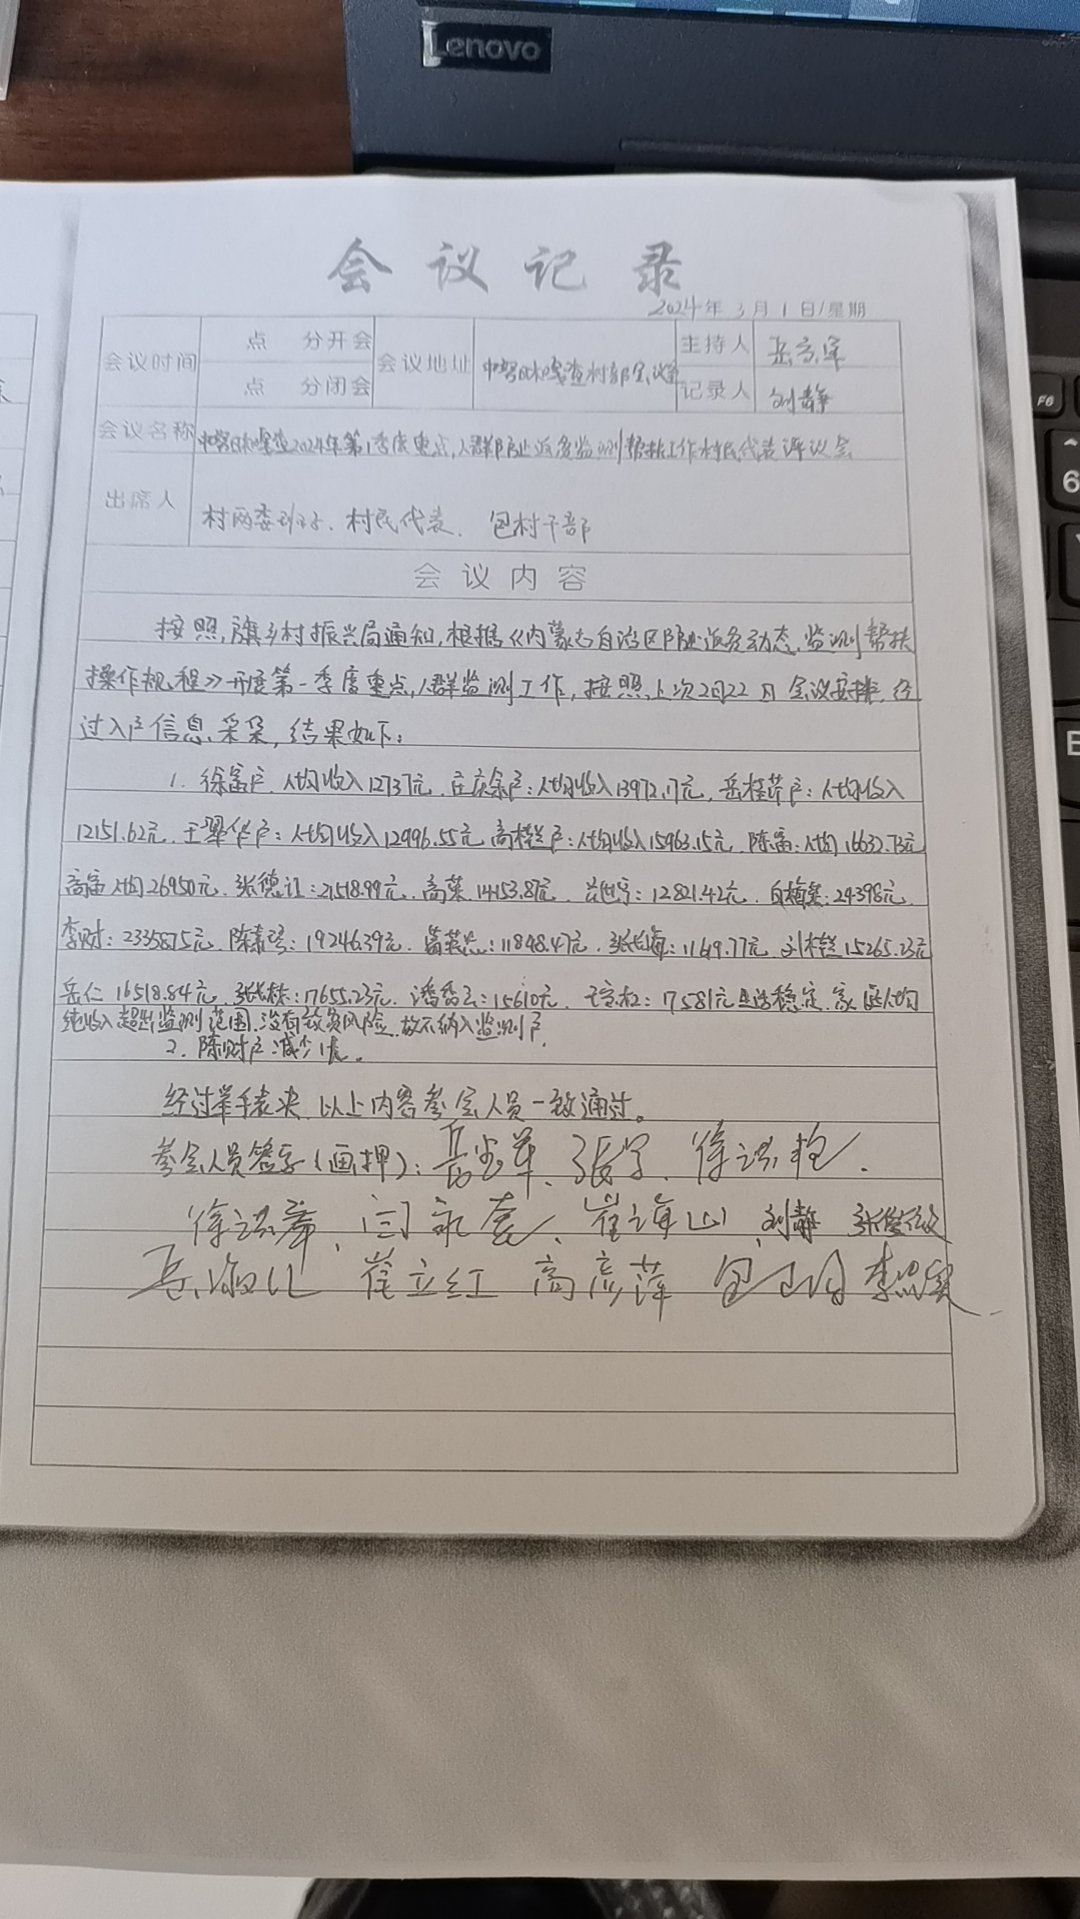 Lenovo
F6
6
会议记录
2024年3月1日/星期
会议时间 点 分开会 会议地址 主持人
点 分闭会 记录人 刘静
会议名称 2024年第1季度重点人群防止返贫监测帮扶工作村民代表评议会
出席人 村两委班子、村民代表、包村干部
会议内容
按照旗乡村振兴局通知,根据《内蒙古自治区防止返贫动态监测帮扶
操作规程》开展第一季度重点人群监测工作,按照上次2月22日会议安排,经
过入户信息采集,结果如下:
1. 徐富户 人均收入12737元、庄庆余户:人均收入13972.17元,岳桂芹户:人均收入
12151.62元、王翠华户:人均收入12996.55元、高桂兰户:人均收入15963.15元、陈富:人均16632.73元
高富人均26950元、张德江:21518.99元、高荣14153.87元、12821.42元、白梅案:24398元、
李财:23358.75元、陈素琴:19246.39元、11848.47元、张长海:11649.77元、刘桂兰15265.23元
岳仁16518.84元、张长栋:17655.23元、潘香云:15610元、17581元生活稳定,家庭人均
纯收入超出监测范围,没有致贫风险,故不纳入监测户。
2. 陈财户减少1人。
经过举手表决,以上内容参会人员一致通过。
参会人员签字(画押):张宝、
刘静
崔立红 高彦萍